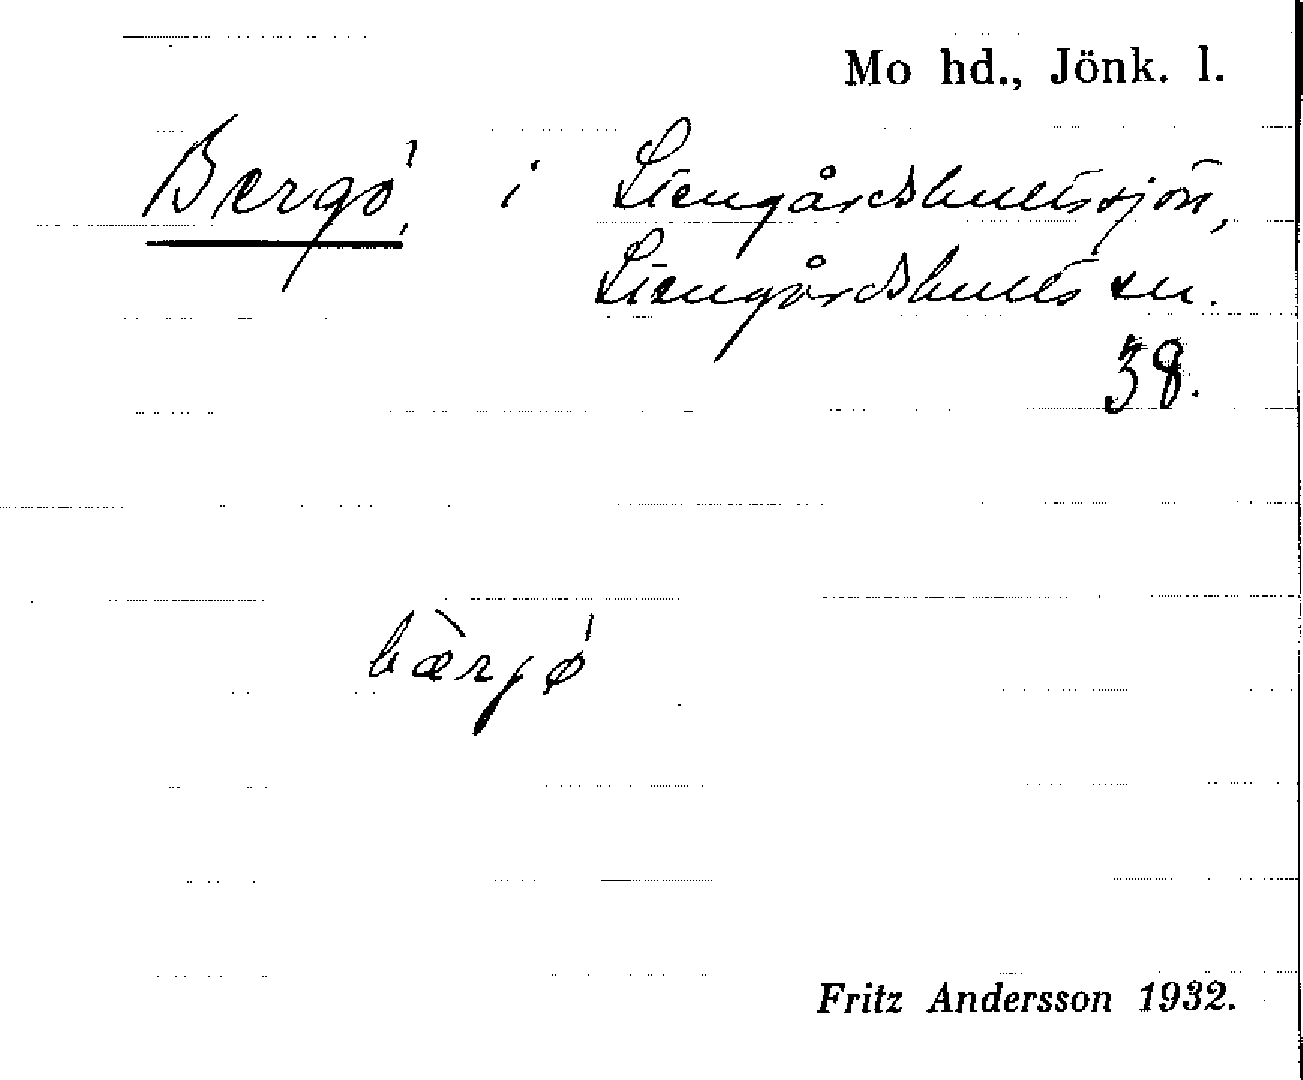 Mo hd., Jönk. l.
Bergö! i Stengårdshultssjön,
Stengårdshults sn.
38.
bæ̀rjǿ
Fritz Andersson 1932.